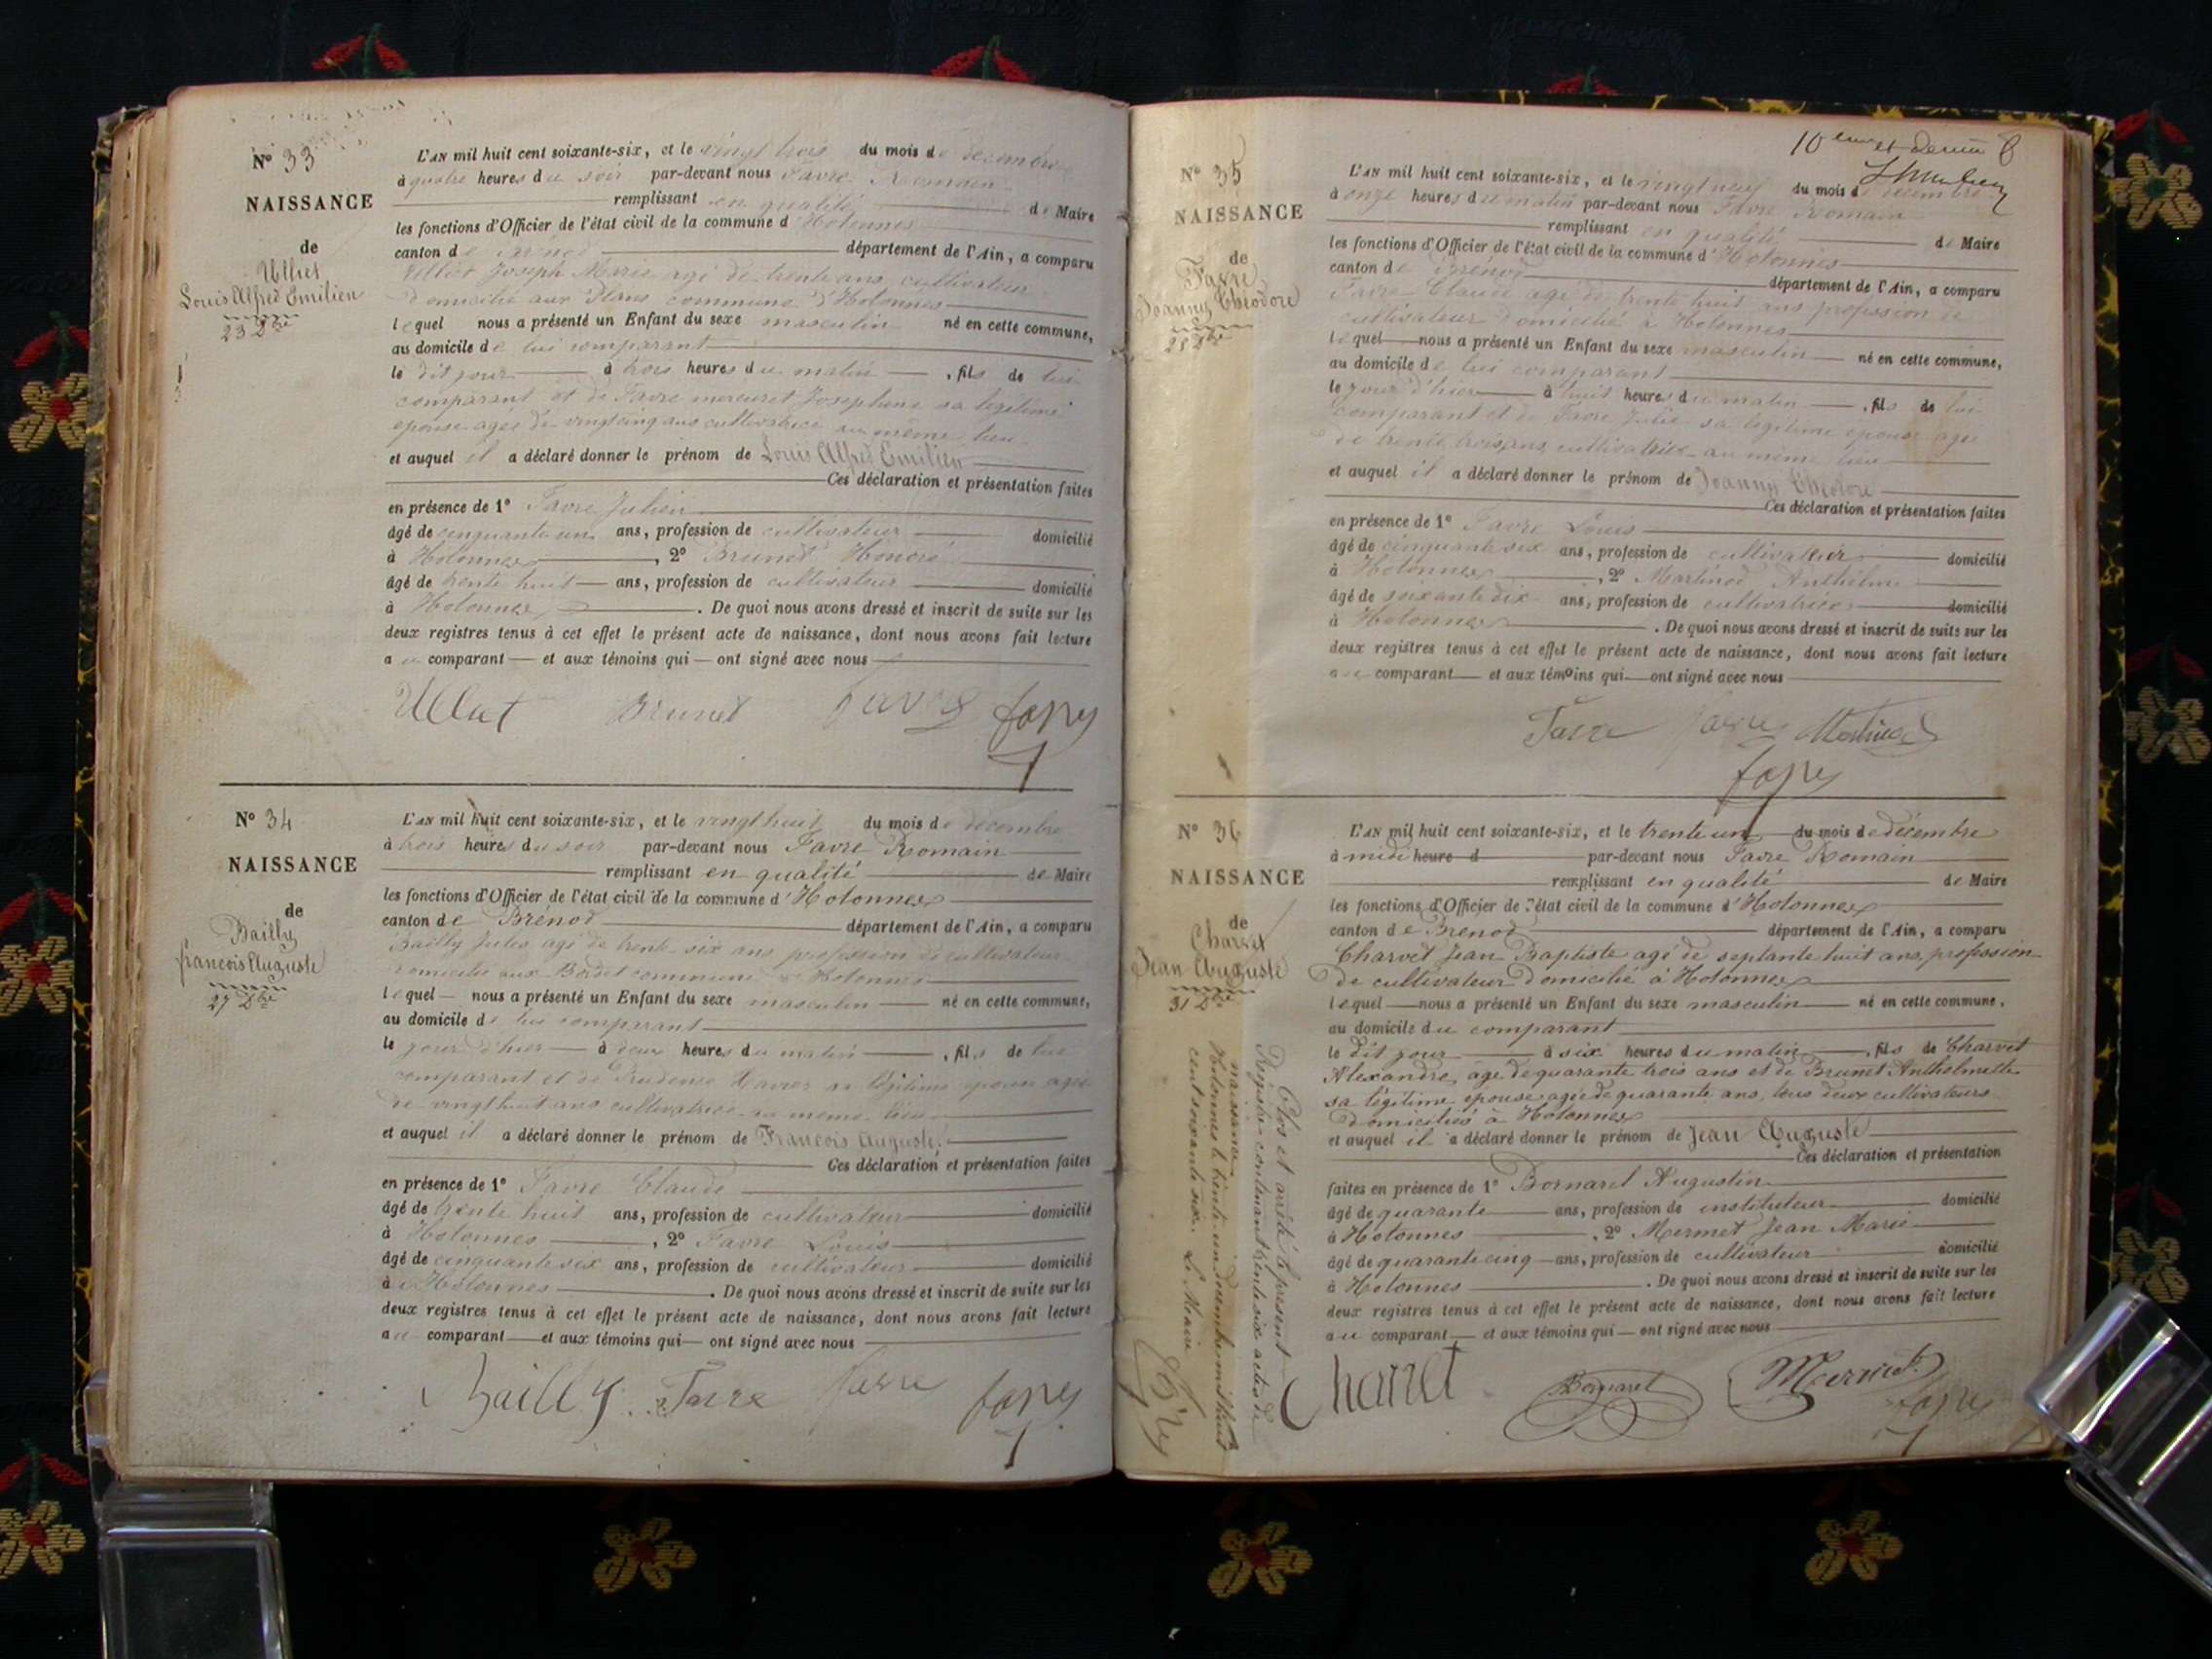 N° 33
NAISSANCE
de
Ulliet
Louis Alfred Emilien
23 Xbre
L'AN mil huit cent soixante-six, et le vingt trois du mois de décembre
à quatre heures du soir par-devant nous Favre Romain
remplissant en qualité de Maire
les fonctions d'Officier de l'état civil de la commune d'Hotonnes
canton de Brénod département de l'Ain, a comparu
Ulliet Joseph Marie agé de trente ans cultivateur
domicilié aux Plans commune d'Hotonnes
lequel nous a présenté un Enfant du sexe masculin né en cette commune,
au domicile de lui comparant
le dit jour à trois heures du matin, fils de lui
comparant et de Favre mercuret Josephine sa légitime
épouse agée de vingt cinq ans cultivatrice au même lieu
et auquel il a déclaré donner le prénom de Louis Alfred Emilien
Ces déclaration et présentation faites
en présence de 1° Favre Julien
âgé de cinquante un ans, profession de cultivateur domicilié
à Hotonnes, 2° Brunet Honoré
âgé de trente huit ans, profession de cultivateur domicilié
à Hotonnes. De quoi nous avons dressé et inscrit de suite sur les
deux registres tenus à cet effet le présent acte de naissance, dont nous avons fait lecture
au comparant et aux témoins qui ont signé avec nous
Ulliet Brunet favre
N° 34
NAISSANCE
de
Bailly
francois Auguste
27 Xbre
L'AN mil huit cent soixante-six, et le vingt huit du mois de décembre
à trois heures du soir par-devant nous Favre Romain
remplissant en qualité de Maire
les fonctions d'Officier de l'état civil de la commune d'Hotonnes
canton de Brénod département de l'Ain, a comparu
Bailly Jules agé de trente six ans profession de cultivateur
domicilié aux Bordet commune d'Hotonnes
lequel nous a présenté un Enfant du sexe masculin né en cette commune,
au domicile de lui comparant
le jour d'hier à deux heures du matin, fils de lui
comparant et de Prudence sa légitime épouse agée
de vingt huit ans cultivatrice au même lieu
et auquel il a déclaré donner le prénom de Francois Auguste
Ces déclaration et présentation faites
en présence de 1° Favre Claude
âgé de trente huit ans, profession de cultivateur domicilié
à Hotonnes, 2° Favre Louis
âgé de cinquante six ans, profession de cultivateur domicilié
à Hotonnes. De quoi nous avons dressé et inscrit de suite sur les
deux registres tenus à cet effet le présent acte de naissance, dont nous avons fait lecture
au comparant et aux témoins qui ont signé avec nous
Bailly Favre favre
10eme et dernier
N° 35
NAISSANCE
de
Favre
Joanny Théodore
28 Xbre
L'AN mil huit cent soixante-six, et le vingt neuf du mois de décembre
à onze heures du matin par-devant nous Favre Romain
remplissant en qualité de Maire
les fonctions d'Officier de l'état civil de la commune d'Hotonnes
canton de Brénod département de l'Ain, a comparu
Favre Claude agé de trente huit ans profession de
cultivateur domicilié à Hotonnes
lequel nous a présenté un Enfant du sexe masculin né en cette commune,
au domicile de lui comparant
le jour d'hier à huit heures du matin, fils de lui
comparant et de Favre Julie sa légitime épouse agée
de trente trois ans cultivatrice au même lieu
et auquel il a déclaré donner le prénom de Joanny Théodore
Ces déclaration et présentation faites
en présence de 1° Favre Louis
âgé de cinquante six ans, profession de cultivateur domicilié
à Hotonnes, 2° Martinod Anthelme
âgé de soixante dix ans, profession de cultivatrice domicilié
à Hotonnes. De quoi nous avons dressé et inscrit de suite sur les
deux registres tenus à cet effet le présent acte de naissance, dont nous avons fait lecture
au comparant et aux témoins qui ont signé avec nous
Favre favre Martinod
N° 36
NAISSANCE
de
Charvet
Jean Auguste
31 Xbre
L'AN mil huit cent soixante-six, et le trente un du mois de décembre
à midi heure d par-devant nous Favre Romain
remplissant en qualité de Maire
les fonctions d'Officier de l'état civil de la commune d'Hotonnes
canton de Brénod département de l'Ain, a comparu
Charvet Jean Baptiste agé de septante huit ans, profession
de cultivateur domicilié à Hotonnes
lequel nous a présenté un Enfant du sexe masculin né en cette commune,
au domicile du comparant
le dit jour à six heures du matin, fils de Charvet
Alexandre, agé de quarante trois ans et de Brunet Anthelmette
sa légitime épouse agée de quarante ans, tous deux cultivateurs
domiciliés à Hotonnes
et auquel il a déclaré donner le prénom de Jean Auguste
Ces déclaration et présentation
faites en présence de 1° Bornarel Augustin
âgé de quarante ans, profession de instituteur domicilié
à Hotonnes, 2° Mermet Jean Marie
âgé de quarante cinq ans, profession de cultivateur domicilié
à Hotonnes. De quoi nous avons dressé et inscrit de suite sur les
deux registres tenus à cet effet le présent acte de naissance, dont nous avons fait lecture
au comparant et aux témoins qui ont signé avec nous
Charvet Bornarel Mermet
Clos et arrêté le présent
Régistre contenant trente six actes de
naissance.
Hotonnes le trente un décembre mil huit
cent soixante six. Le Maire